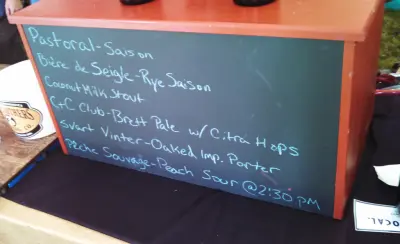 Pastoral-Saison
Bière de Seigle-Rye Saison
Coconut Milk Stout
C+C Club-Brett Pale w/ Citra Hops
Svart Vinter-Oaked Imp. Porter
Pêche Sauvage-Peach Sour @2:30 PM
OCAL.